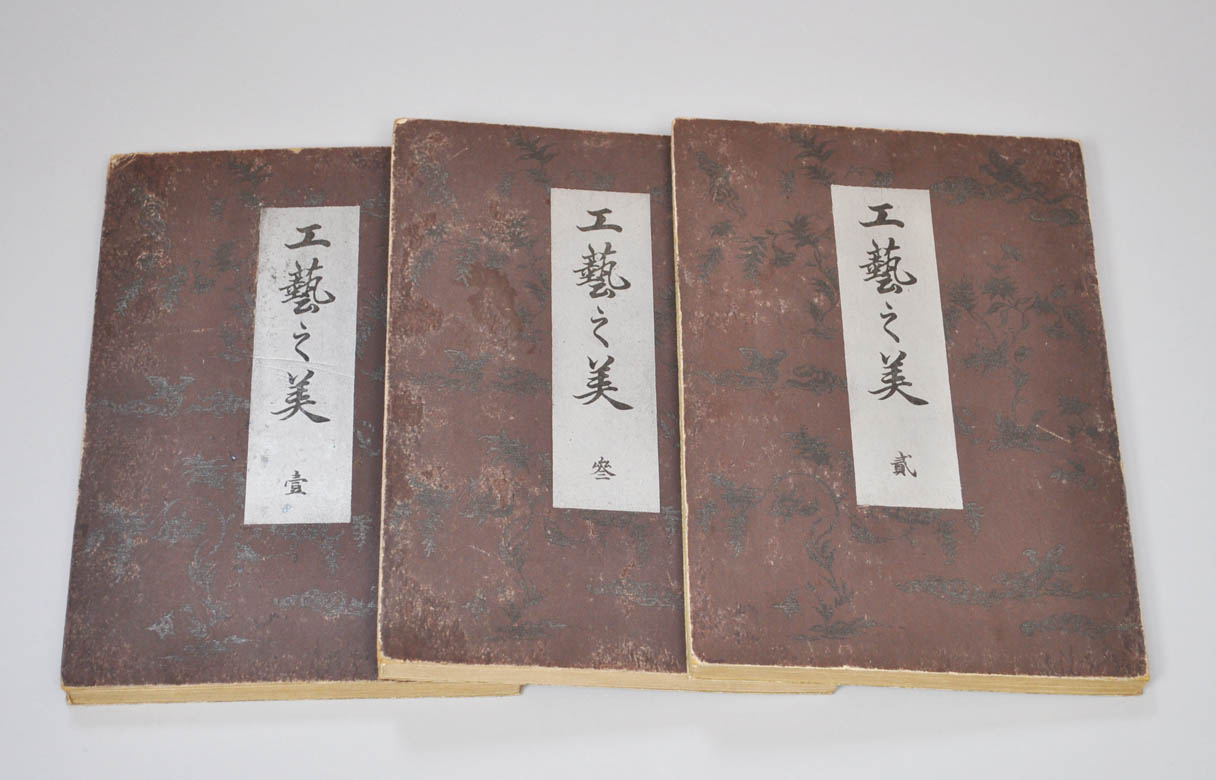 工藝之美
壹
工藝之美
叄
工藝之美
貳